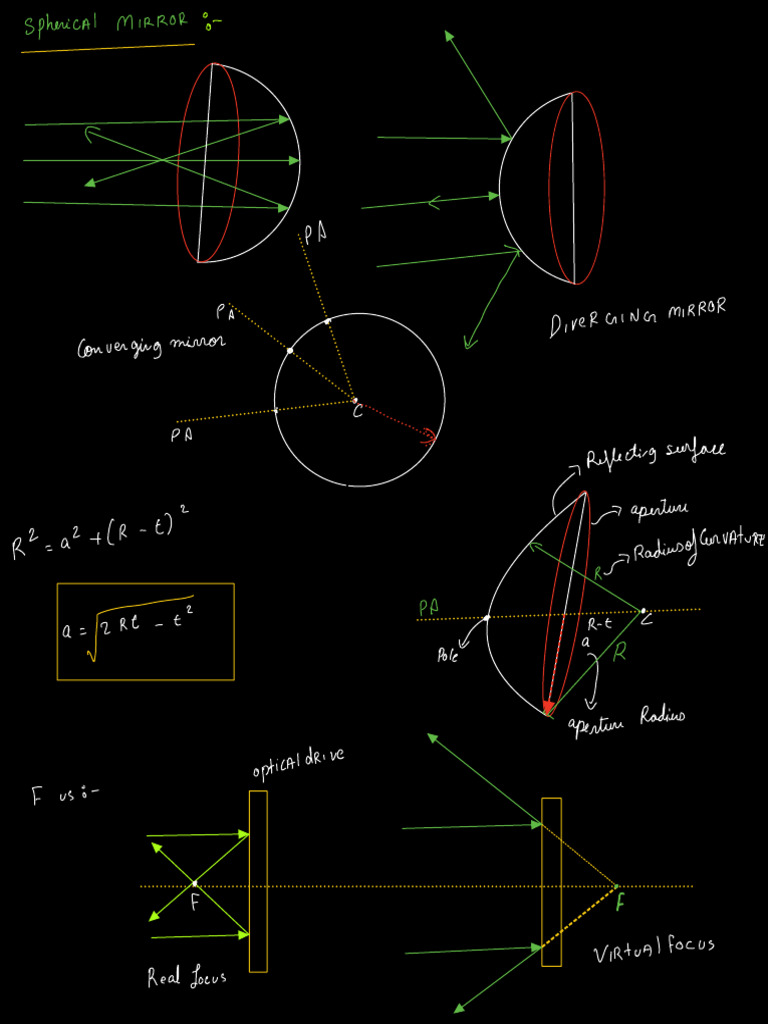 Spherical MIRROR :-
PA
PA
Converging mirror
DIVERGING MIRROR
C
PA
Reflecting surface
aperture
R² = a² + (R - t)²
Radius of CURVATURE
R
PA
C
R-t
a = √2Rt - t²
a
R
Pole
aperture Radius
optical drive
F us :-
F
F
Real focus
VIRtual focus